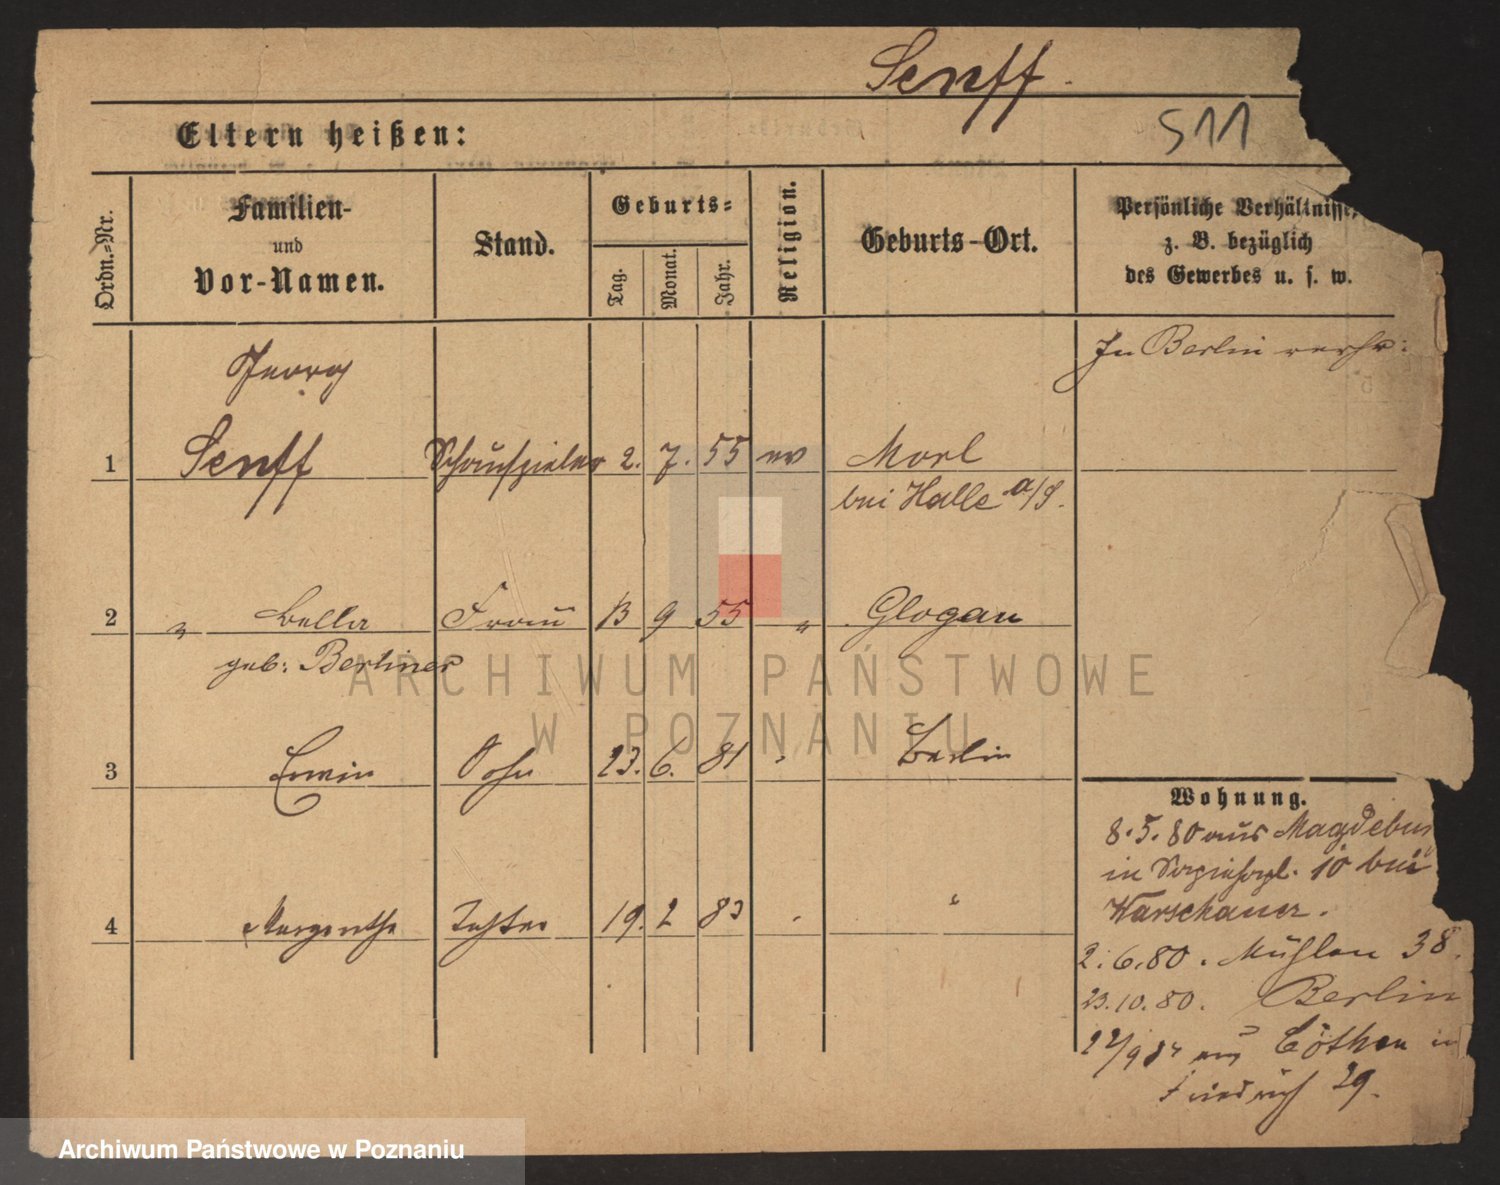 Senff.
511
Eltern heißen:
Ordn.-Nr.
Familien-
und
Vor-Namen.
Stand.
Geburts-
Tag.
Monat.
Jahr.
Religion.
Geburts-Ort.
Persönliche Verhältnisse,
z. B. bezüglich
des Gewerbes u. s. w.
In Berlin verh:
Georg
1 Senff Schauspieler 2. 7. 55 ev Morl
bei Halle a/S.
2 " Bella Frau 13 9 55 " Glogau
geb: Berliner
3 Erwin Sohn 23. 6. 81 " Berlin
4 Margarethe Tochter 19. 2 83 " "
Wohnung.
8.5.80 aus Magdebur
in 10 bei
Warschauer.
2.6.80. Mühlen 38.
23.10.80. Berlin
22/9 84 aus Cöthen in
Friedrich 29.
ARCHIWUM PAŃSTWOWE
W POZNANIU
Archiwum Państwowe w Poznaniu